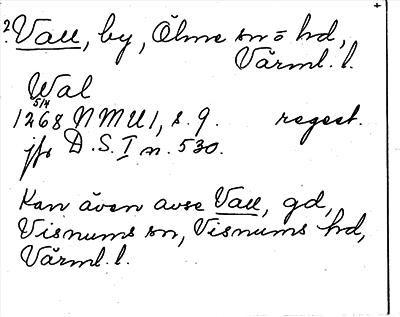 2. Vall, by, Ölme sn = hd,
Värml. l.
Wal
5/4
1268 NMU 1, s. 9. regest.
jfr D. S. I n. 530.
Kan även avse Vall, gd,
Visnums sn, Visnums hd,
Värml. l.